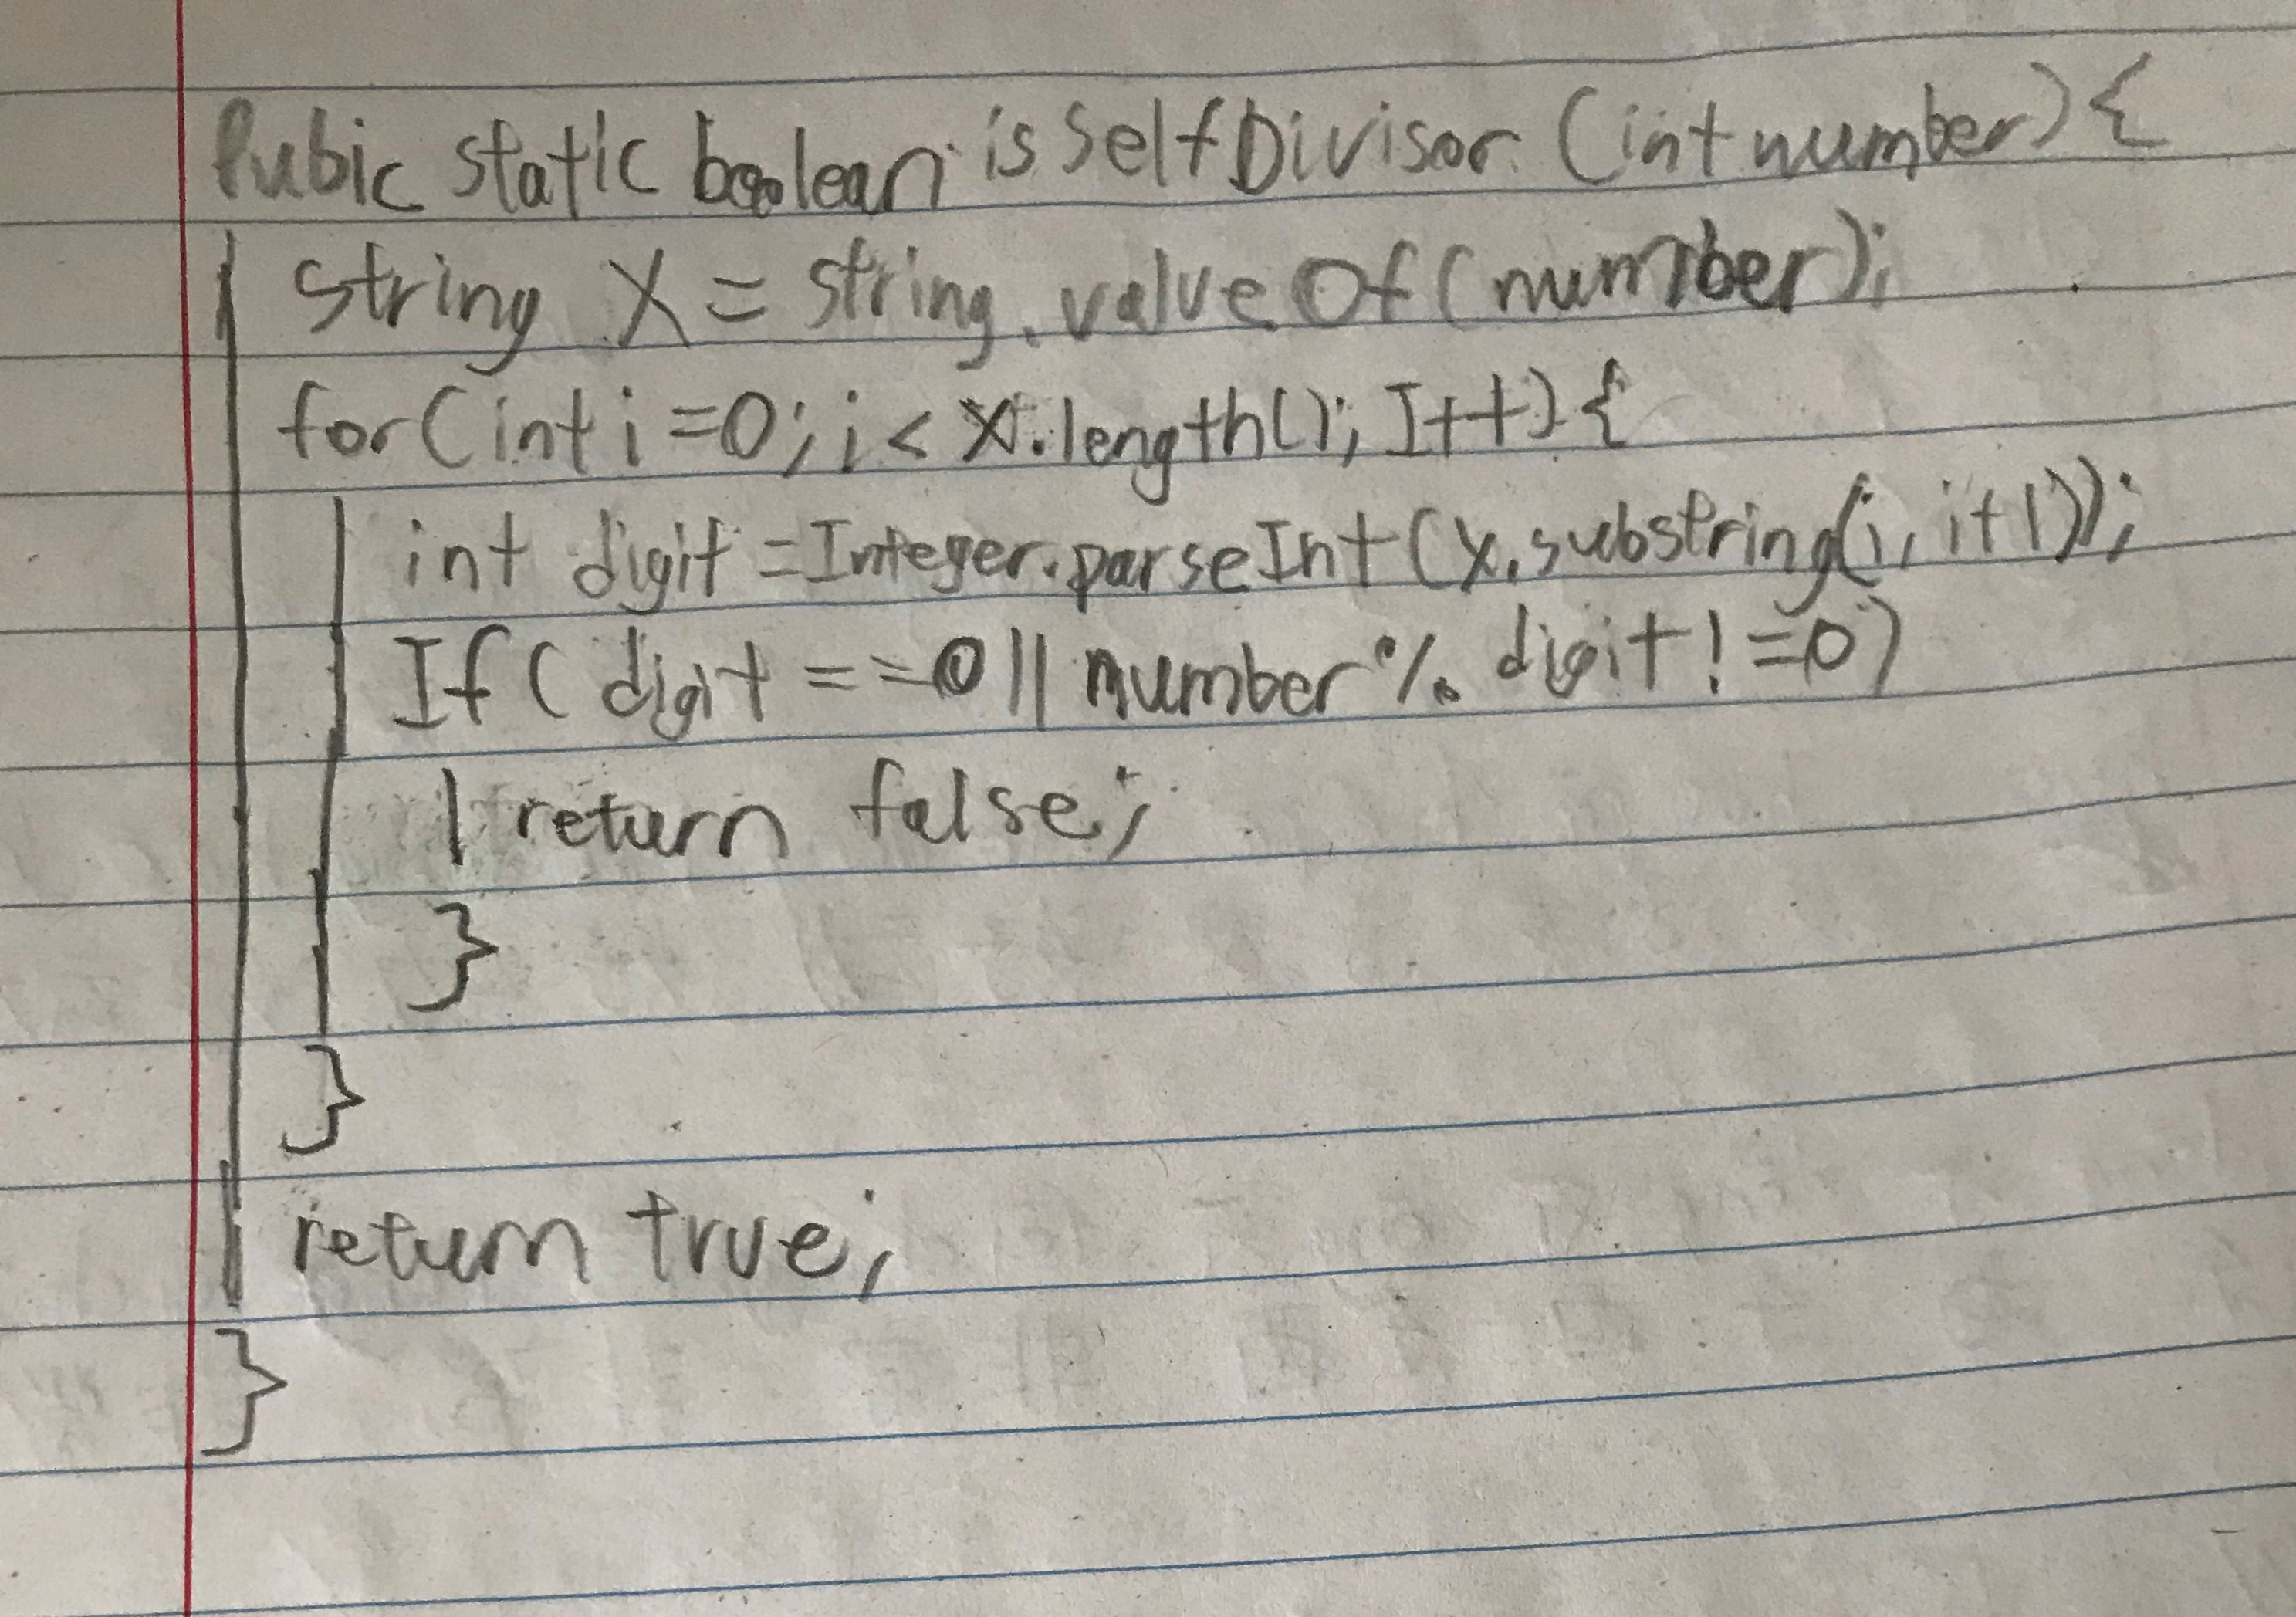 Pubic static boolean isSelfDivisor (int number) {
string X = string.valueOf(number);
for(int i=0; i < X.length(); I++) {
int digit = Integer.parseInt(x.substring(i, i+1));
If( digit == 0 || number % digit != 0)
return false;
}
}
return true;
}